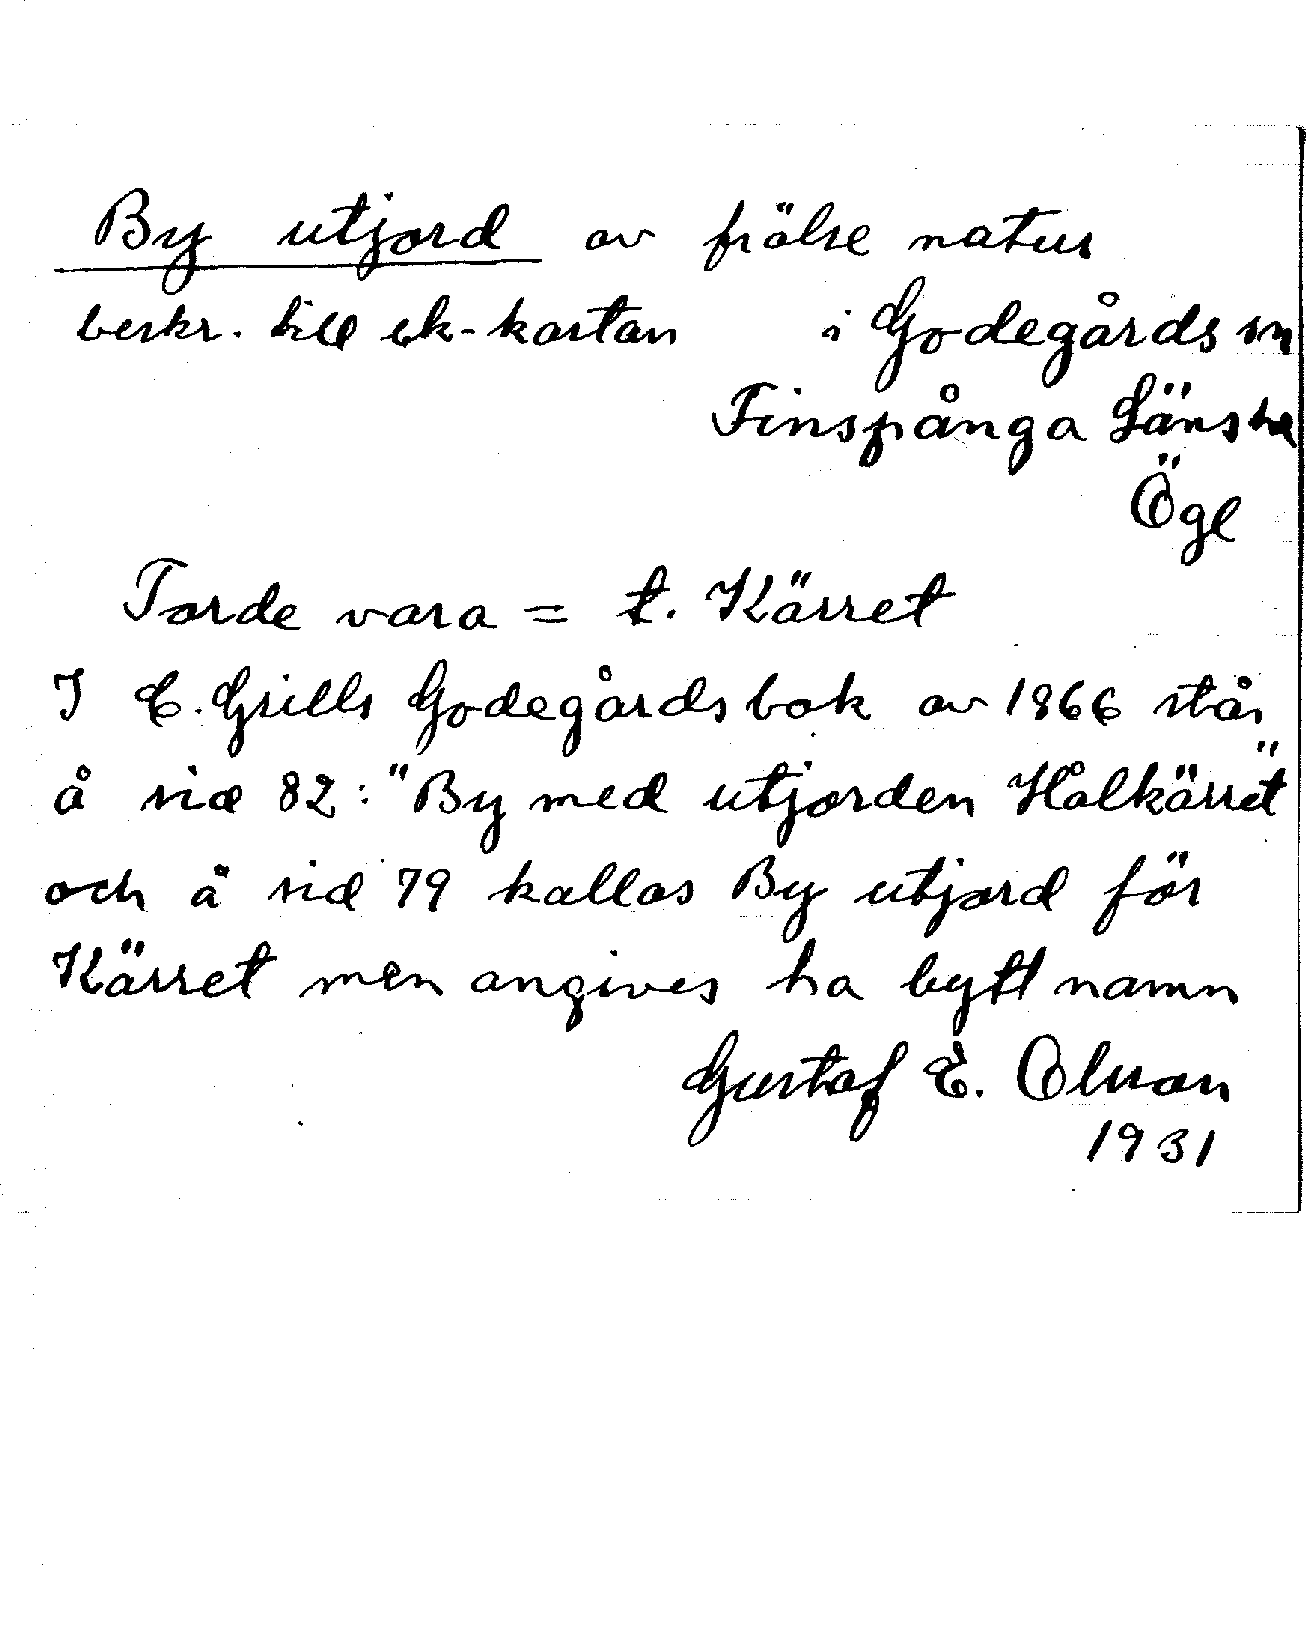 By utjord av frälse natur
beskr. till ek-kartan i Godegårds sn
Finspånga Länshd
Ögl
Torde vara = t. Kärret
I C. Grills Godegårdsbok av 1866 står
å sid 82: "By med utjorden Hålkärret"
och å sid 79 kallas By utjord för
Kärret men angives ha bytt namn
Gustaf E. Olsson
1931